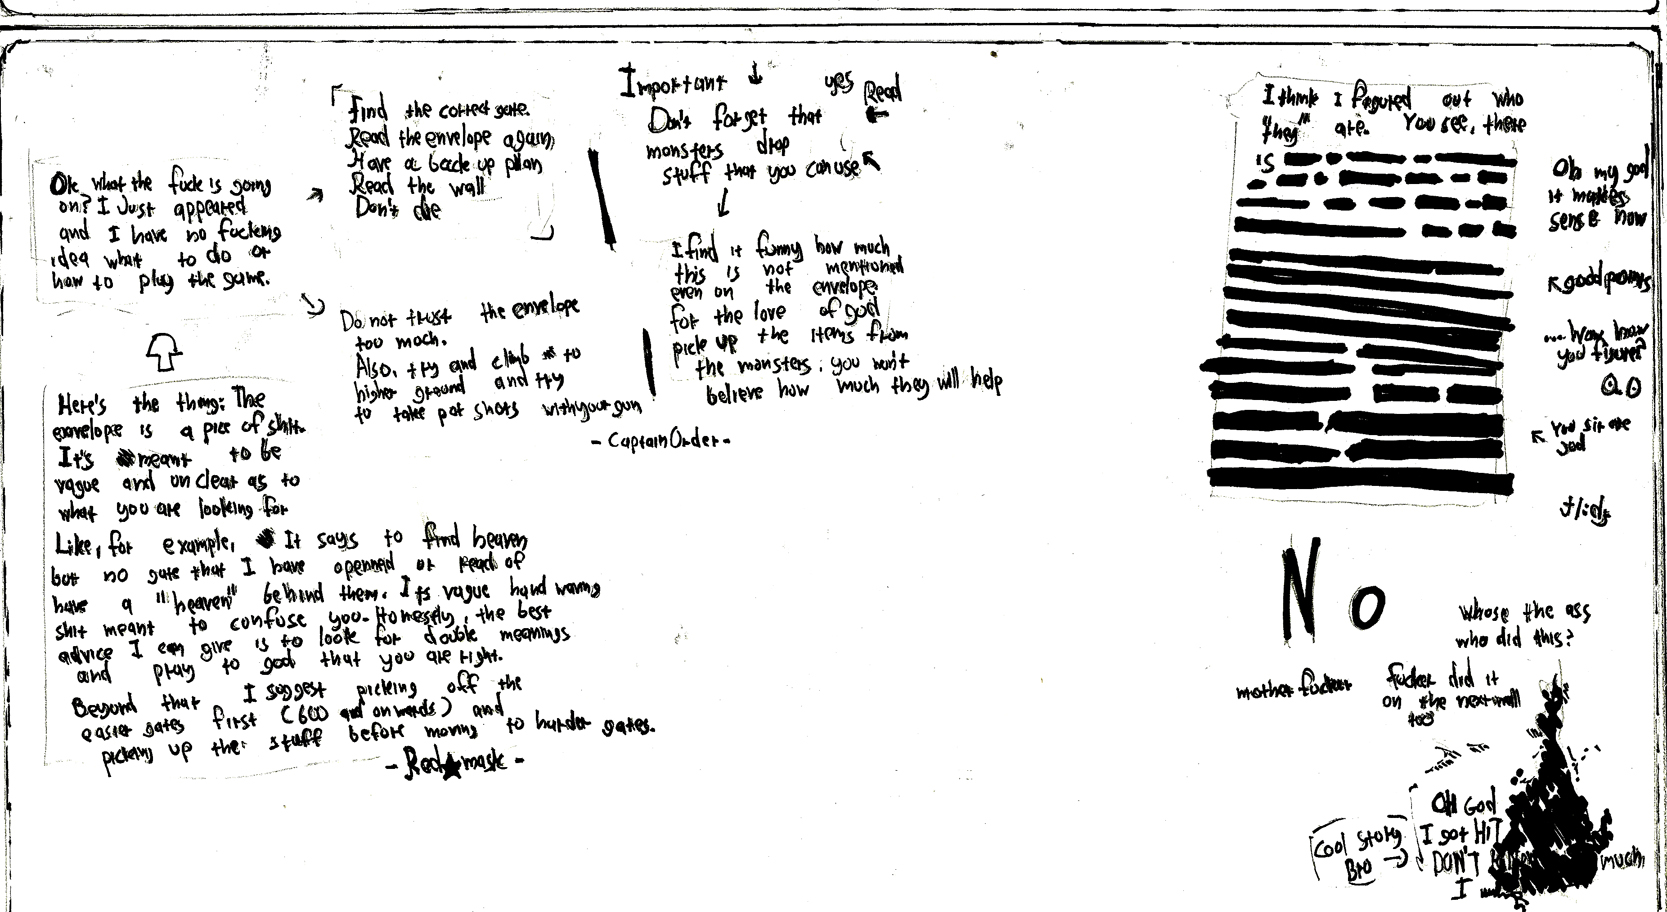 Ok, what the fuck is going
on? I Just appeared
and I have no fucking
idea what to do or
how to play the game.
Find the correct gate.
Read the envelope again,
Have a back up plan
Read the wall
Don't die
Do not trust the envelope
too moch.
Also, try and climb to
higher ground and try
to take pot shots with your gun
- Captain Order -
Important ↓ yes
Read
Don't forget that
monsters drop
stuff that you can use
I find it funny how much
this is not mentioned
even on the envelope.
for the love of god
pick up the items from
the monsters; you won't
believe how much they will help
Here's the thing: The
envelope is a pice of shit.
It's meant to be
vague and unclear as to
what you are looking for
Like, for example, It says to find heaven
but no gate that I have openned or read of
have a "heaven" behind them. Its vague hand waving
shit meant to confuse you. Honestly, the best
advice I can give is to look for double meanings
and pray to god that you are right.
Beyond that I suggest picking off the
easier gates first (600 and onwards) and
picking up the stuff before moving to harder gates.
- Red★mask -
I think I figured out who
"they" are. You see, there
is
Oh my god
it makes
sense now
good points
... how
you figure?
You sir are
god
No
whose the ass
who did this?
mother fucker
fucker did it
on the next wall
too
Cool story
Bro
OH God
I got HIT
DON'T
much
I